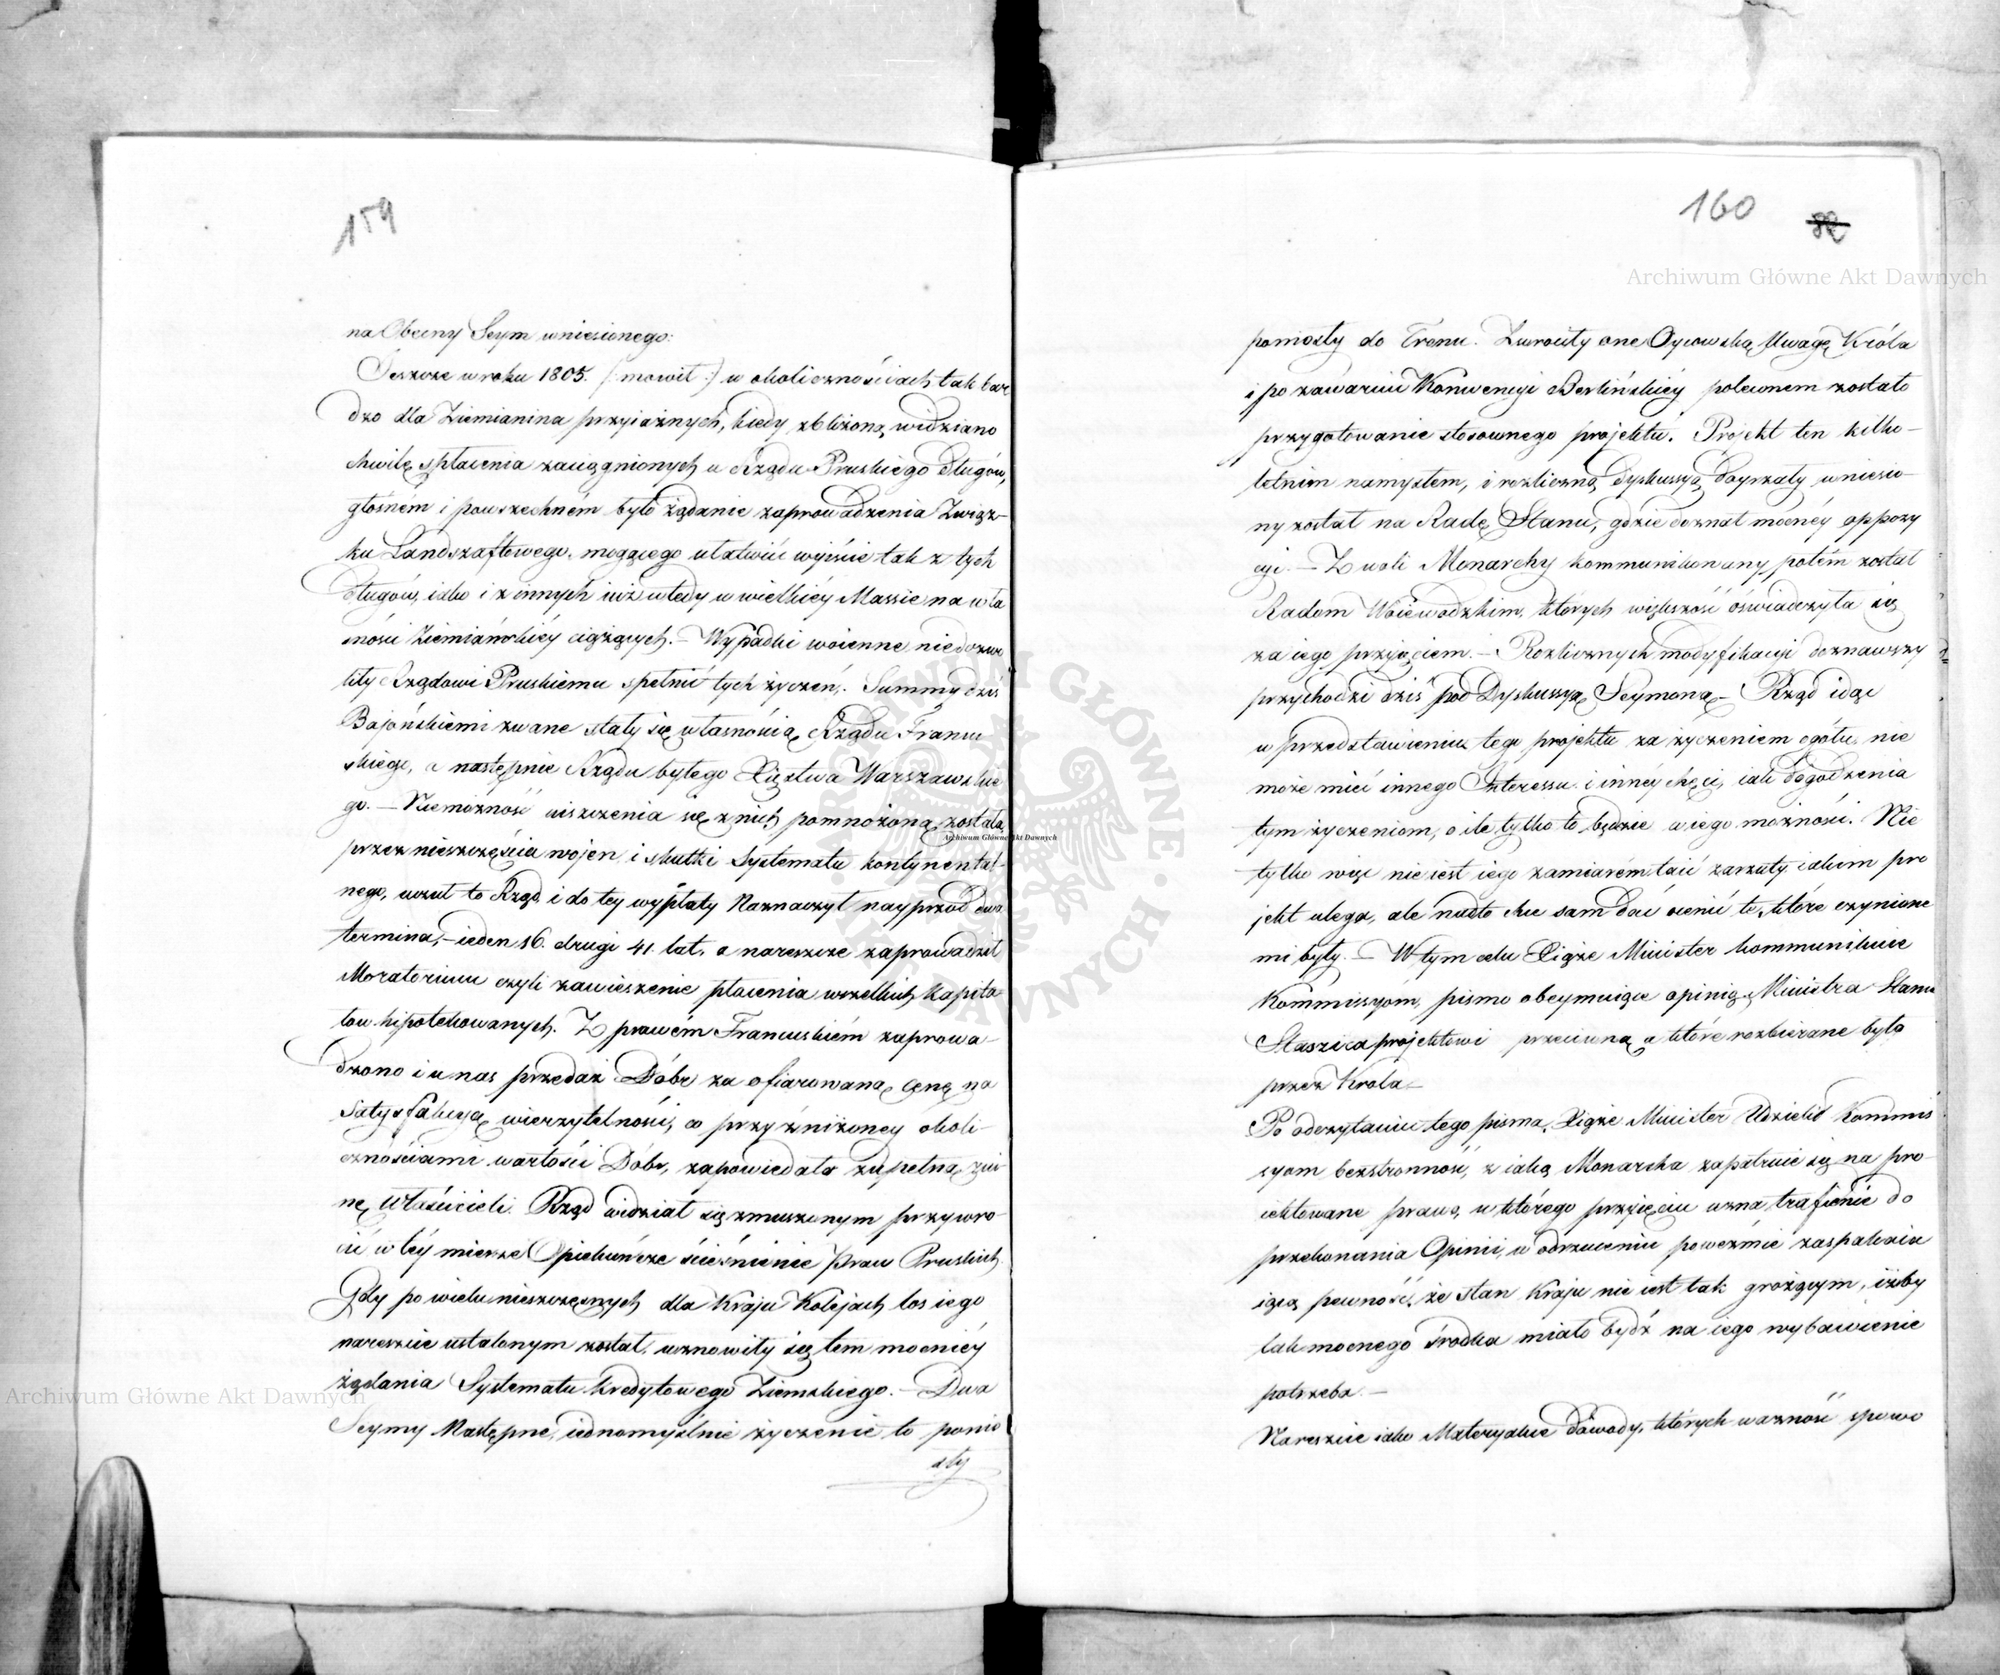 159
na Obecny Seym wniesionego:
Jeszcze w roku 1805. /: mowił :/ w okolicznościach tak bar
dzo dla Ziemianina przyiaznych, kiedy zbliżoną widziano
chwilę spłacenia zaciągnionych u Rządu Pruskiego Długów,
głosném i powszechném było żądanie zaprowadzenia Związ-
ku Landszaftowego, mogącego ułatwić wyiście tak z tych
Długów, iako i z innych iuż wtedy w wielkiéy Massie na wła
sności Ziemiańskiéy ciążących. – Wypadki woienne niedozwo
liły Rządowi Pruskiemu spełnić tych życzeń. Summy dziś
Bajońskiemi zwane stały się własnością Rządu Francu
skiego, a następnie Rządu byłego Xięstwa Warszawskie
go. – Niemożność uiszczenia się z nich pomnożoną została
przez nieszczęścia wojen i skutki Systematu kontynental-
nego, uczuł to Rząd i do tey wypłaty Naznaczył nayprzód dwa
termina, – ieden 16. drugi 41. lat, a nareszcie zaprowadził
Moratorium czyli zawieszenie płacenia wszelkich Kapita
łow hipotekowanych. Z prawém Francuskiém zaprowa-
dzono i u nas przedaż Dóbr za ofiarowaną cenę na
Satysfakcyą wierzytelności, co przy zniżoney okoli-
cznościami wartości Dóbr, zapowiedało zupełną rui-
nę Właścicieli. Rząd widział się zmuszonym przywro-
cić w téy mierze Opiekuńcze ścieśnienie praw Pruskich.
Gdy po wielu nieszczęsnych dla Kraju Kolejach los iego
nareszcie ustalonym został, wznowiły się tem mocniéy
żądania Systematu Kredytowego Ziemskiego. – Dwa
Seymy Następne, iednomyślnie życzenie to ponio
sły
160
82
poniosły do Tronu. Zwróciły one Oycowską Uwagę Króla
i po zawarciu Konwencyi Berlińskiéy poleconem zostało
przygotowanie stosownego projektu. Projekt ten kilko-
letnim namysłem, i rozliczną Dyskussyą Doyrzały wniesio-
ny został na Radę Stanu, gdzie doznał mocnéy oppozy
cyi. – Z woli Monarchy kommunikowany potém został
Radom Woiewodzkim, których większość oświadczyła się
za iego przyięciem. – Rozlicznych modyfikacyi doznawszy
przychodzi dziś pod Dyskussyą Seymową – Rząd idąc
w przedstawieniu tego projektu za życzeniem ogółu, nie
może mieć innego Interessu i innéy chęci, iak dogodzenia
tym życzeniom, o ile tylko to będzie w iego możności. Nie
tylko więc nie iest iego zamiarém taić zarzuty iakim pro
jekt ulega, ale nadto chce sam dać ocenić te, które czynione
mi były. – W tym celu Xiąże Minister kommunikuie
Kommissyóm, pismo obeymuiące opinią Ministra Stanu
Staszica projektowi przeciwną a które rozbierane było
przez Króla –
Po odczytaniu tego pisma, Xiąże Minister Udzielił Kommis
syom bezstronność, z iaką Monarcha zapatruie się na pro-
iektowane prawo, w którego przyięciu uzna trafienie do
przekonania Opinii, w odrzuceniu poweźmie zaspakaia
iącą pewność, że stan Kraju nie iest tak grożącym, iżby
tak mocnego środka miało bydź na iego wybawienie
potrzeba. –
Nareszcie iako Materyalne dowody, których ważność spowo
Archiwum Główne Akt Dawnych
Archiwum Główne Akt Dawnych
Archiwum Główne Akt Dawnych
ARCHIWUM GŁÓWNE AKT DAWNYCH